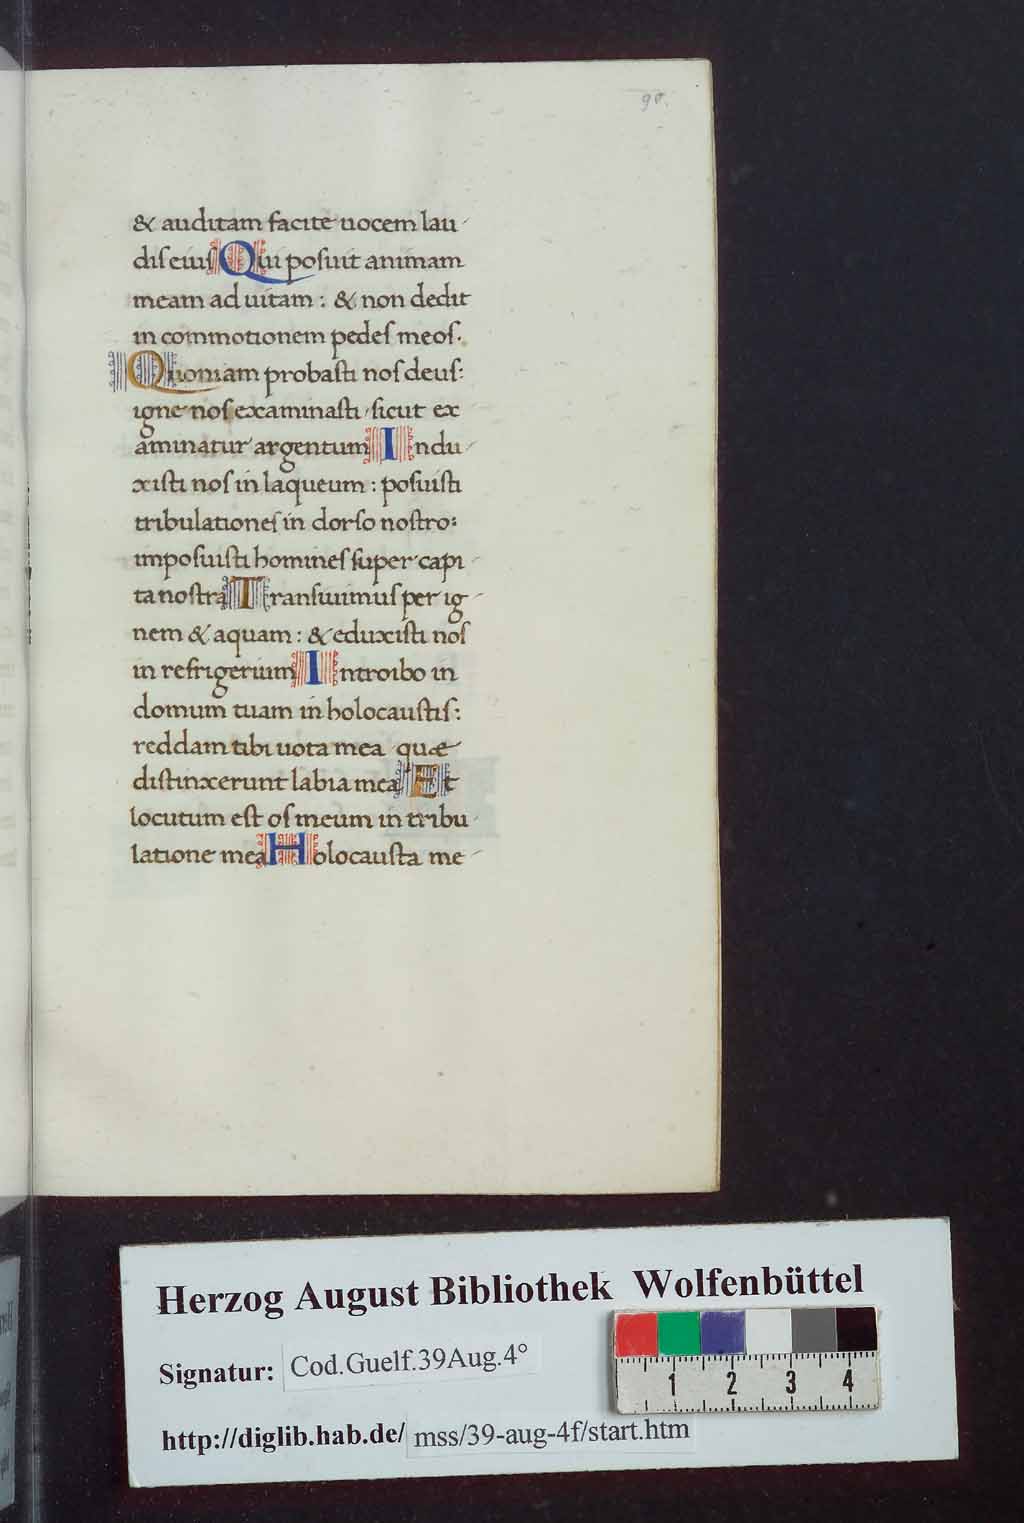 90.
& auditam facite uocem lau-
dis eius Qui posuit animam
meam ad uitam: & non dedit
in commotionem pedes meos.
Quoniam probasti nos deus:
igne nos examinasti sicut ex
aminatur argentum Indu-
xisti nos in laqueum: posuisti
tribulationes in dorso nostro:
imposuisti homines super capi-
ta nostra Transiuimus per ig-
nem & aquam: & eduxisti nos
in refrigerium Introibo in
domum tuam in holocaustis:
reddam tibi uota mea quæ
distinxerunt labia mea Et
locutum est os meum in tribu-
latione mea Holocausta me-
Herzog August Bibliothek Wolfenbüttel
Signatur: Cod.Guelf.39Aug.4°
1 2 3 4
http://diglib.hab.de/ mss/39-aug-4f/start.htm